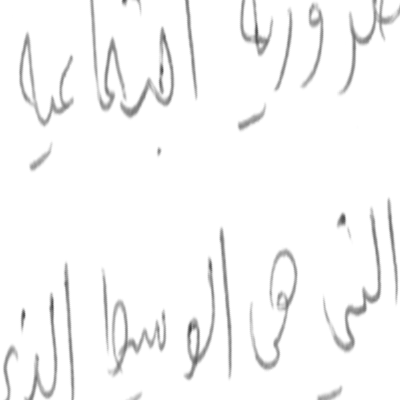 ضرورية اجتماعية
التي هي الوسيط الذي